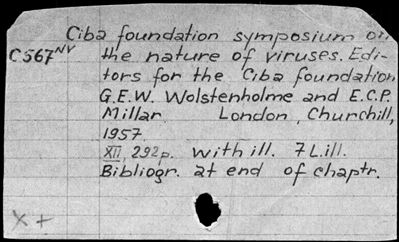 Ciba foundation symposium on
C567 NV the nature of viruses. Edi-
tors for the Ciba foundation
G.E.W. Wolstenholme and E.C.P.
Millar. London, Churchill,
1957.
XII, 292p. with ill. 7 L.ill.
Bibliogr. at end of chaptr.
X +